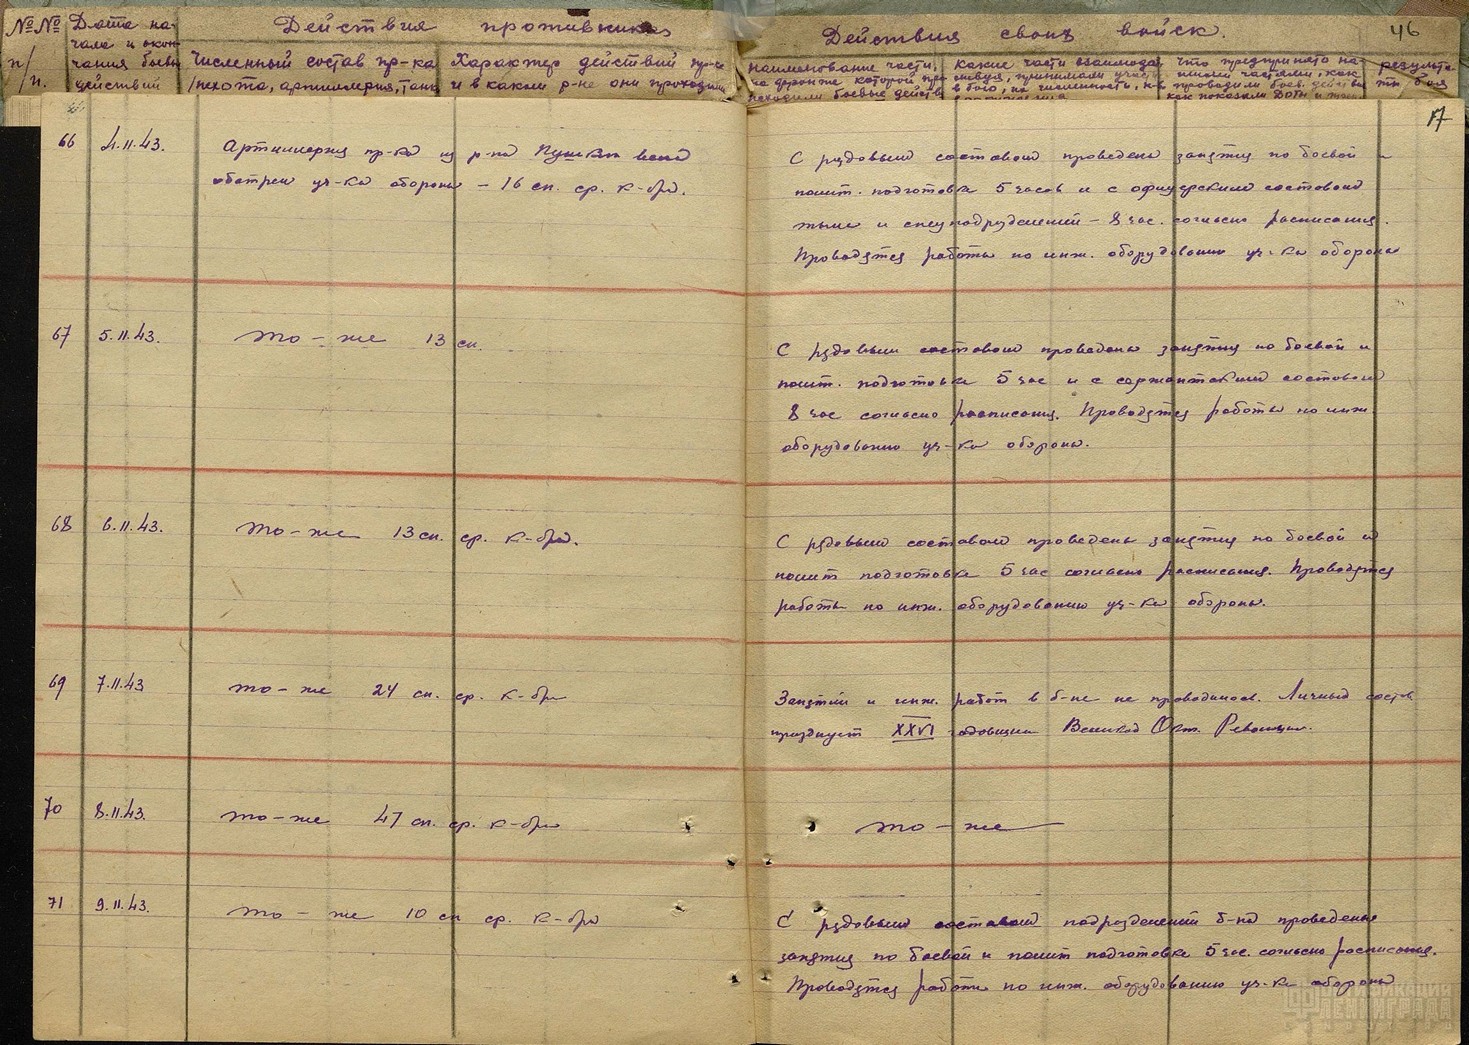 №№ п/п.
Дата начала и окончания боевы действий
Действия противника
Численный состав пр-ка /пехота, артиллерия, танк
Характер действий пр-ка и в каком р-не они проходили
Действия своих войск.
46
наименование части, на фронте которой про
исходили боевые действ
какие части взаимодей
ствуя, принимали участ
в бою, их численность,
что предпринято на-
шими частями, как
проводили боев. действия
как показали ДОТы и
результа-
ты боя
17
66 4.11.43. Артиллерия пр-ка из р-на Пушкин вела
обстрел уч-ка обороны – 16 сн. ср. к-бра.
С рядовым составом проведены занятия по боевой и
полит. подготовке 5 часов и с офицерским составом
тыла и спецподразделений – 8 час. согласно расписания.
Проводятся работы по инж. оборудованию уч-ка обороны
67 5.11.43. То – же 13 сн.
С рядовым составом проведены занятия по боевой и
полит. подготовке 5 час и с сержантским составом
8 час согласно расписания. Проводятся работы по инж.
оборудованию уч-ка обороны.
68 6.11.43. То – же 13 сн. ср. к-бра.
С рядовым составом проведены занятия по боевой и
полит подготовке 5 час согласно расписания. Проводятся
работы по инж. оборудованию уч-ка обороны.
69 7.11.43 То – же 24 сн. ср. к-бра
Занятий и инж. работ в б-не не проводилось. Личный состав
празднует XXVI годовщину Великой Окт. Революции.
70 8.11.43. То – же 47 сн. ср. к-бра
То – же
71 9.11.43. То – же 10 сн ср. к-бра
С рядовым составом подразделений б-на проведены
занятия по боевой и полит подготовке 5 час. согласно расписания.
Проводятся работы по инж. оборудованию уч-ка обороны
ФОРТИФИКАЦИИ
ЛЕНИНГРАДА